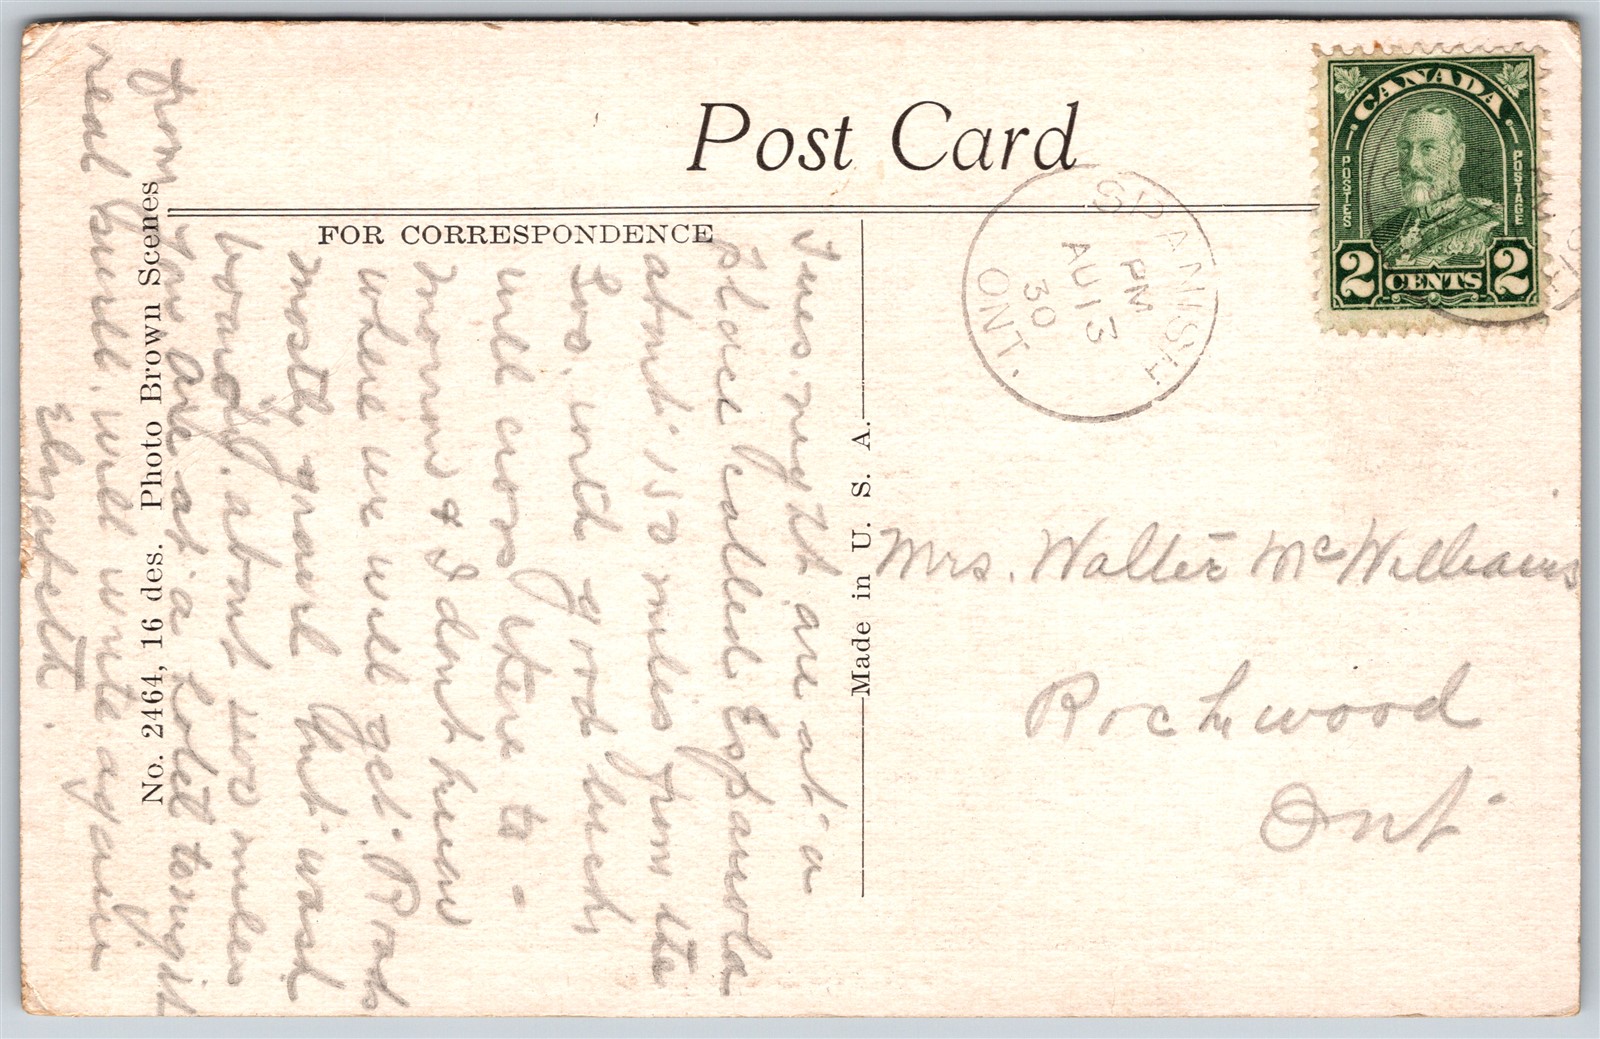 Post Card
FOR CORRESPONDENCE
CANADA
POSTES
POSTAGE
2 CENTS 2
SPANISH
PM
AU 13
30
ONT.
Tues. night are at a
place called Espanola
about 150 miles from the
Soo. with good luck
will cross there to-
morrow & I dont know
where we will get. Roads
mostly gravel but wash
boardy. about 400 miles
from you are at a hotel tonight
real swell. will write again
Elizabeth.
No. 2464, 16 des. Photo Brown Scenes
Made in U. S. A.
Mrs. Walter McWilliams
Rockwood
Ont.